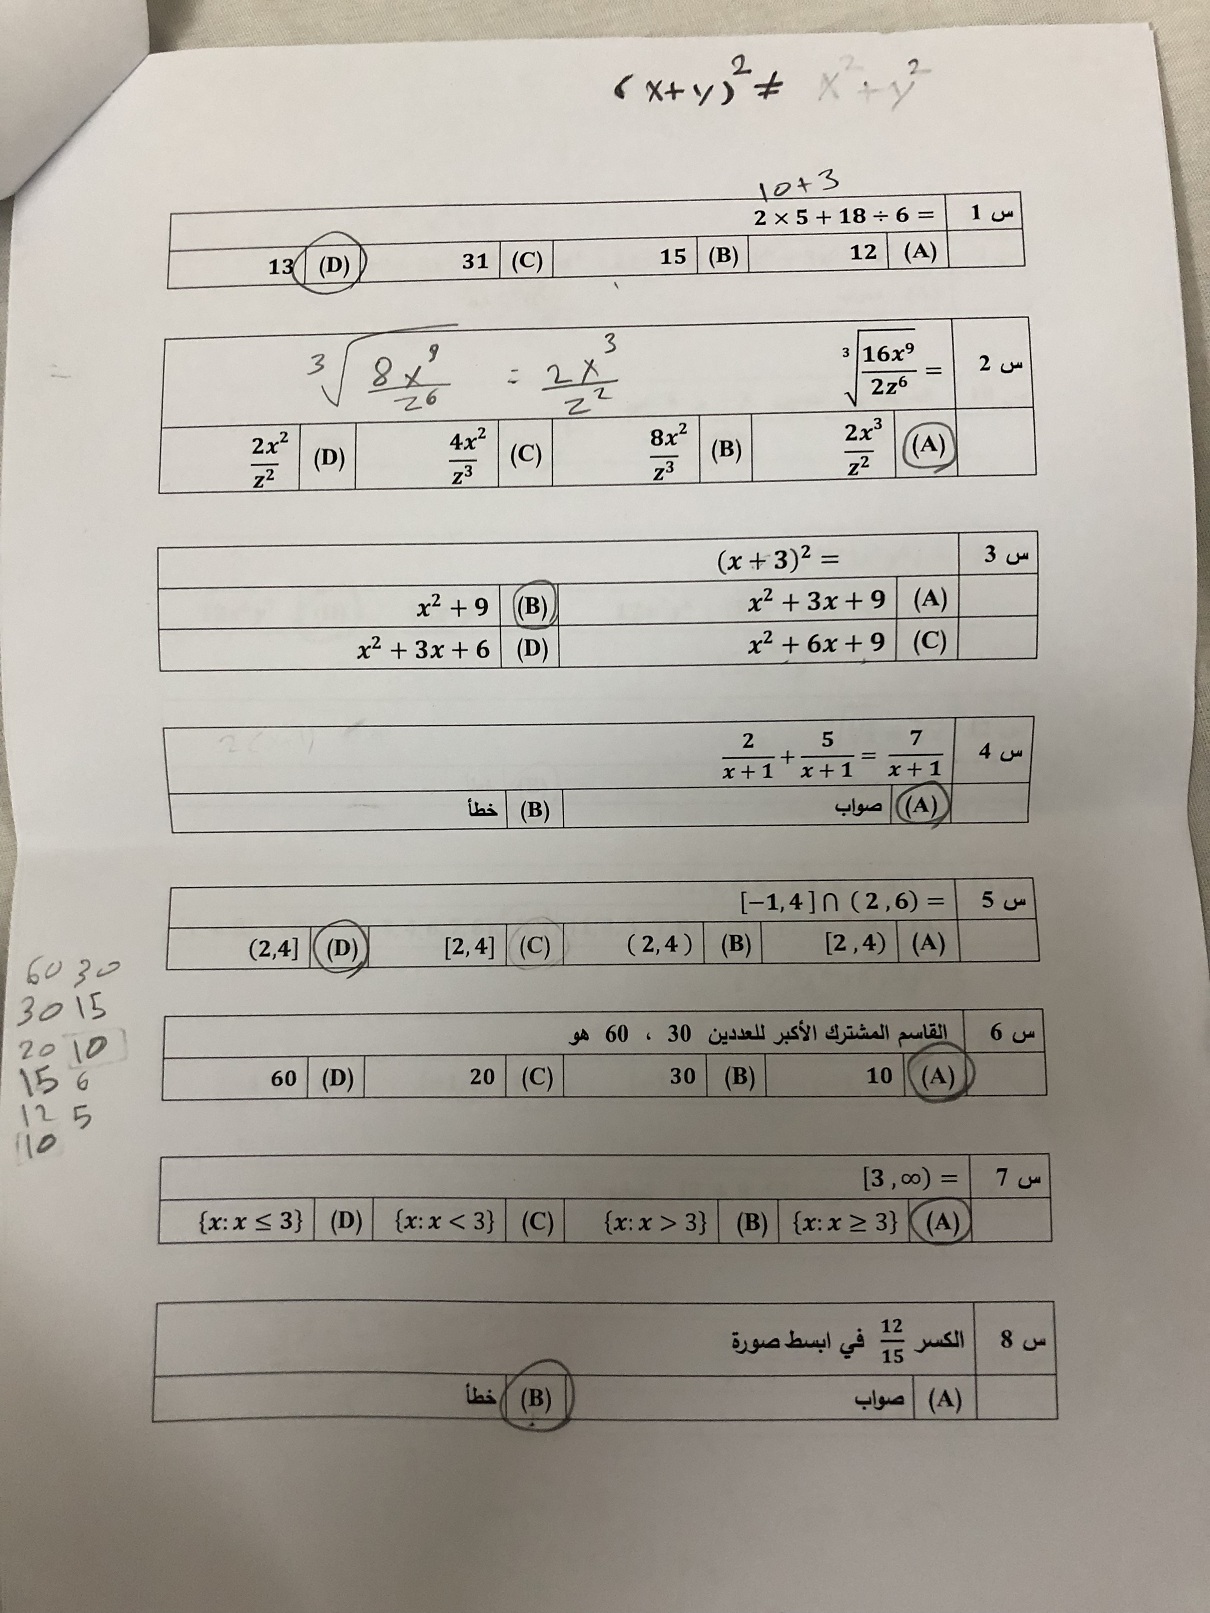 (x+y)² ≠ x²+y²
10+3
س 1 2 × 5 + 18 ÷ 6 =
(A) 12 (B) 15 (C) 31 (D) 13
س 2 ∛(16x⁹/2z⁶) = ∛(8x⁹/z⁶) = 2x³/z²
(A) 2x³/z² (B) 8x²/z³ (C) 4x²/z³ (D) 2x²/z²
س 3 (x + 3)² =
(A) x² + 3x + 9 (B) x² + 9
(C) x² + 6x + 9 (D) x² + 3x + 6
س 4 2/(x + 1) + 5/(x + 1) = 7/(x + 1)
(A) صواب (B) خطأ
س 5 [−1,4] ∩ (2,6) =
(A) [2,4) (B) (2,4) (C) [2,4] (D) (2,4]
60 30
30 15
20 10
15 6
12 5
10
س 6 القاسم المشترك الأكبر للعددين 30 ، 60 هو
(A) 10 (B) 30 (C) 20 (D) 60
س 7 [3,∞) =
(A) {x: x ≥ 3} (B) {x: x > 3} (C) {x: x < 3} (D) {x: x ≤ 3}
س 8 الكسر 12/15 في ابسط صورة
(A) صواب (B) خطأ